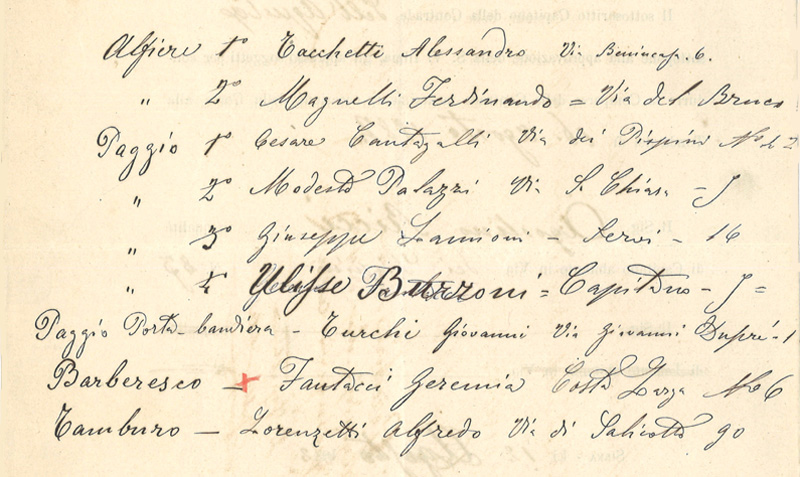 Alfiere 1º Tacchetti Alessandro Via Benincasa 6.
" 2º Magnelli Ferdinando = Via del Bruco
Paggio 1º Cesare Cantagalli Via dei Pispini Nº
" 2º Modesto Palazzi Via S. Chiara =
" 3º Giuseppe - Servi - 16
" 4º Ulisse Burroni = Capitano - =
Paggio Porta-bandiera - Turchi Giovanni Via Giovanni Dupré - 1
Barberesco - Fantacci Geremia Costa Larga Nº 6
Tamburo - Lorenzetti Alfredo Via di Salicotto 90